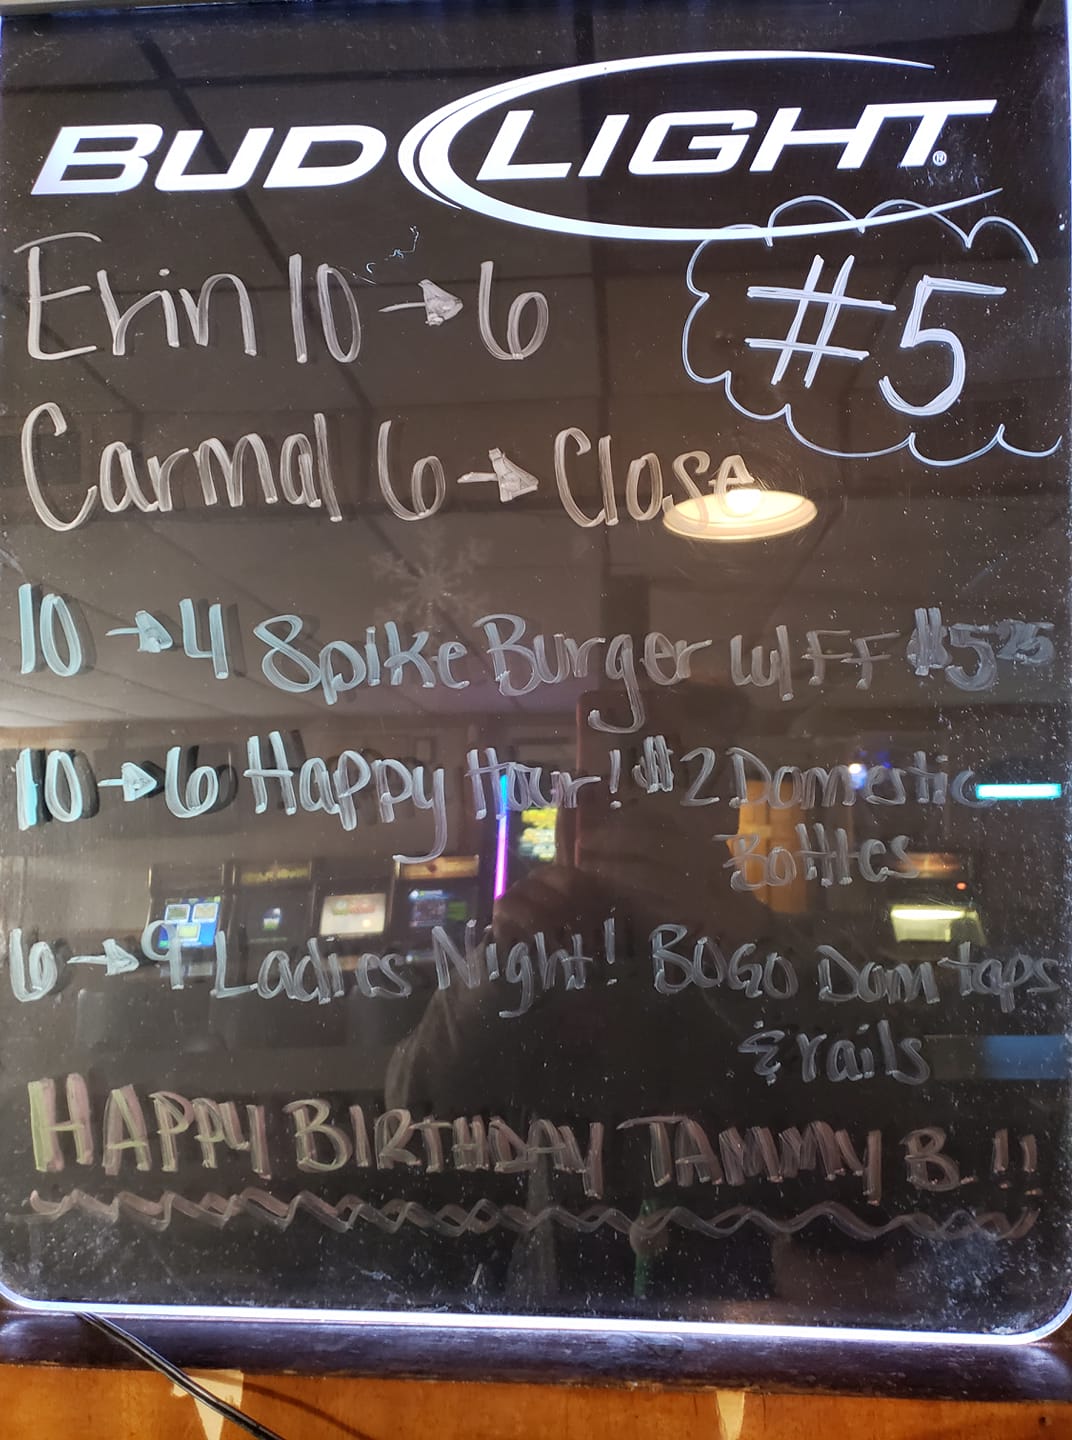 BUD LIGHT®
Erin 10 → 6
#5
Carmal 6 → Close
10 → 4 Spike Burger w/ FF $5 25
10 → 6 Happy Hour! $2 Domestic
Bottles
6 → 9 Ladies Night! BOGO Dom taps
& rails
HAPPY BIRTHDAY TAMMY B.!!